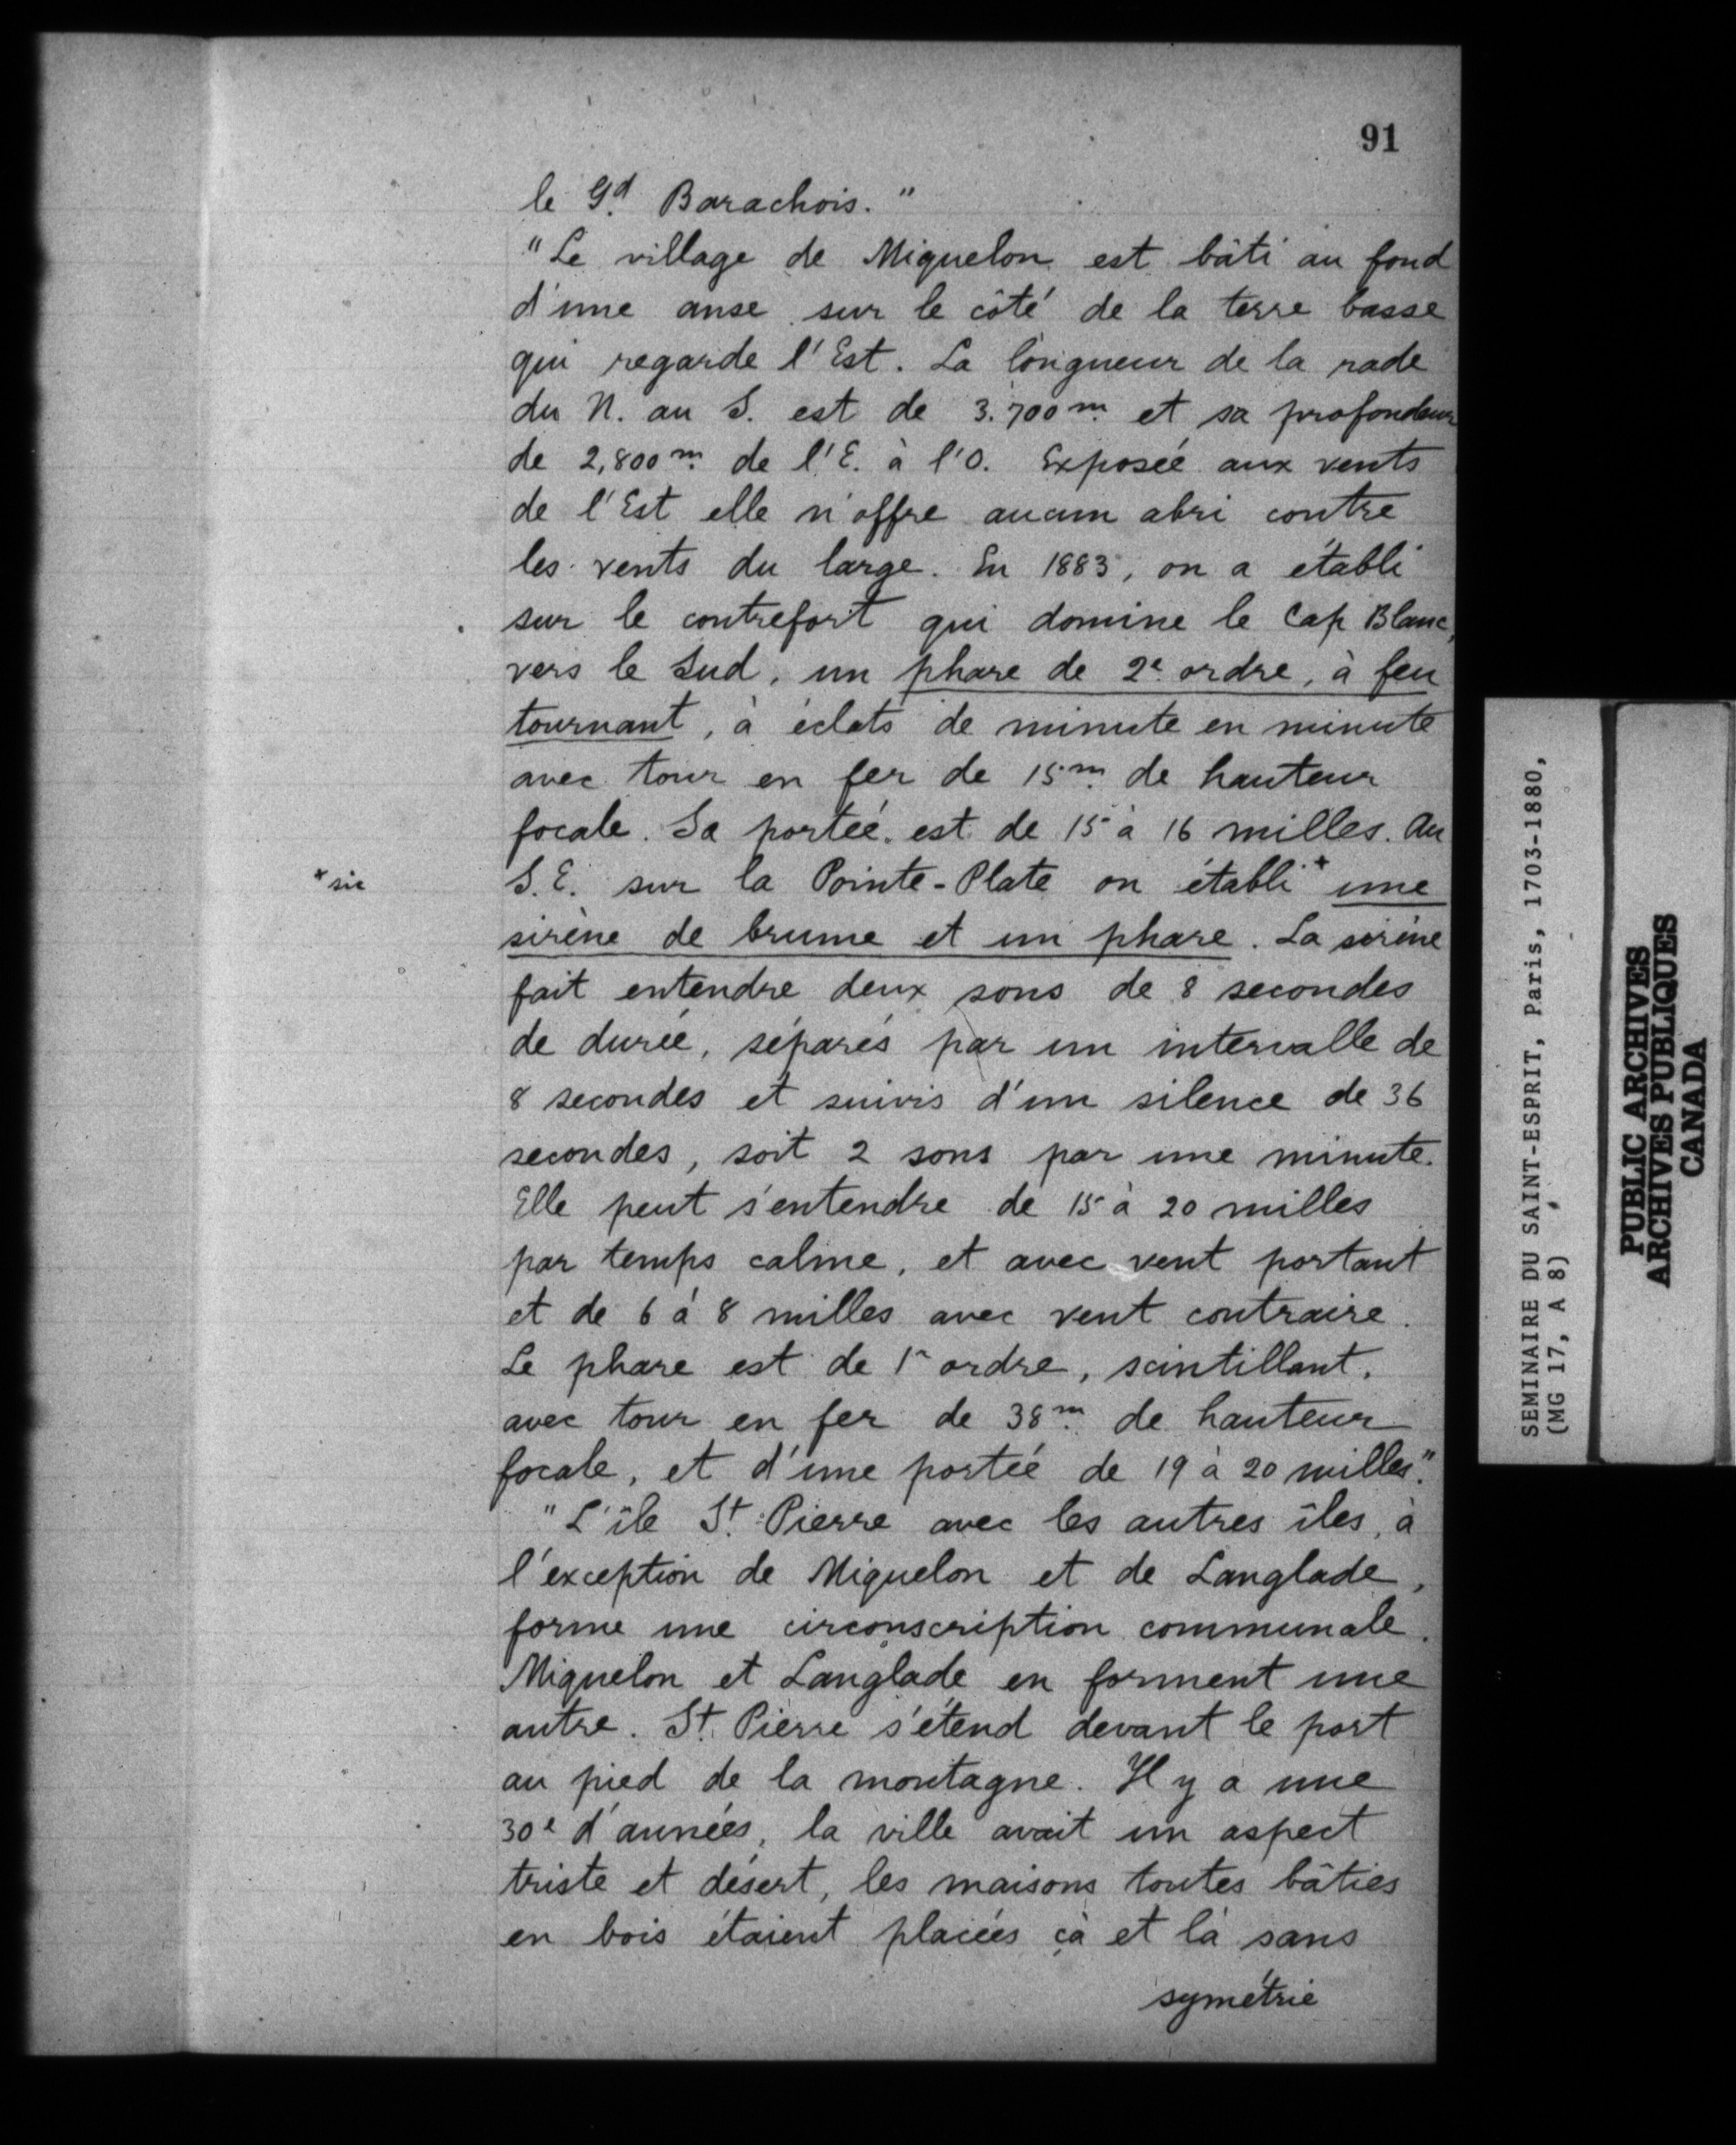 91
le Gd. Barachois."
"Le village de Miquelon est bâti au fond
d'une anse sur le côté de la terre basse
qui regarde l'Est. La longueur de la rade
du N. au S. est de 3.700 m. et sa profondeur
de 2,800 m. de l'E. à l'O. Exposée aux vents
de l'Est elle n'offre aucun abri contre
les vents du large. En 1883, on a établi
sur le contrefort qui domine le Cap Blanc,
vers le Sud, un phare de 2e ordre, à feu
tournant, à éclats de minute en minute
avec tour en fer de 15 m. de hauteur
focale. Sa portée est de 15 à 16 milles. Au
S. E. sur la Pointe-Plate on établi + une
+ sic
sirène de brume et un phare. La sirène
fait entendre deux sons de 8 secondes
de durée, séparés par un intervalle de
8 secondes et suivis d'un silence de 36
secondes, soit 2 sons par une minute.
Elle peut s'entendre de 15 à 20 milles
par temps calme, et avec vent portant
et de 6 à 8 milles avec vent contraire.
Le phare est de 1r ordre, scintillant,
avec tour en fer de 38 m. de hauteur
focale, et d'une portée de 19 à 20 milles."
"L'île St. Pierre avec les autres îles, à
l'exception de Miquelon et de Langlade,
forme une circonscription communale.
Miquelon et Langlade en forment une
autre. St. Pierre s'étend devant le port
au pied de la montagne. Il y a une
30e d'années, la ville avait un aspect
triste et désert, les maisons toutes bâties
en bois étaient placées çà et là sans
symétrie
SEMINAIRE DU SAINT-ESPRIT, Paris, 1703-1880,
(MG 17, A 8)
PUBLIC ARCHIVES
ARCHIVES PUBLIQUES
CANADA